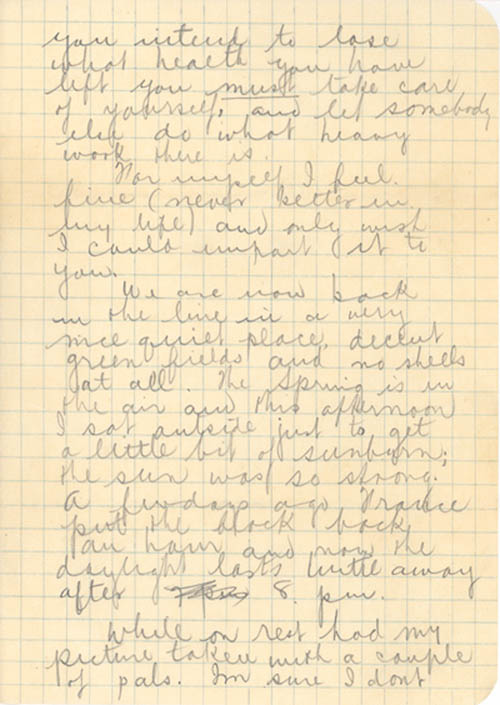 you intend to lose
what health you have
left you must take care
of yourself, and let somebody
else do what heavy
work there is.
For myself I feel
fine (never better in
my life) and only wish
I could impart it to
you.
We are now back
in the line in a very
nice quiet place, decent
green fields and no shells
at all. The spring is in
the air and this afternoon
I sat outside just to get
a little bit of sunburn;
the sun was so strong.
A few days ago France
put the clock back
an hour and now the
daylight lasts until away
after 8. p.m.
While on rest had my
picture taken with a couple
of pals. I'm sure I dont